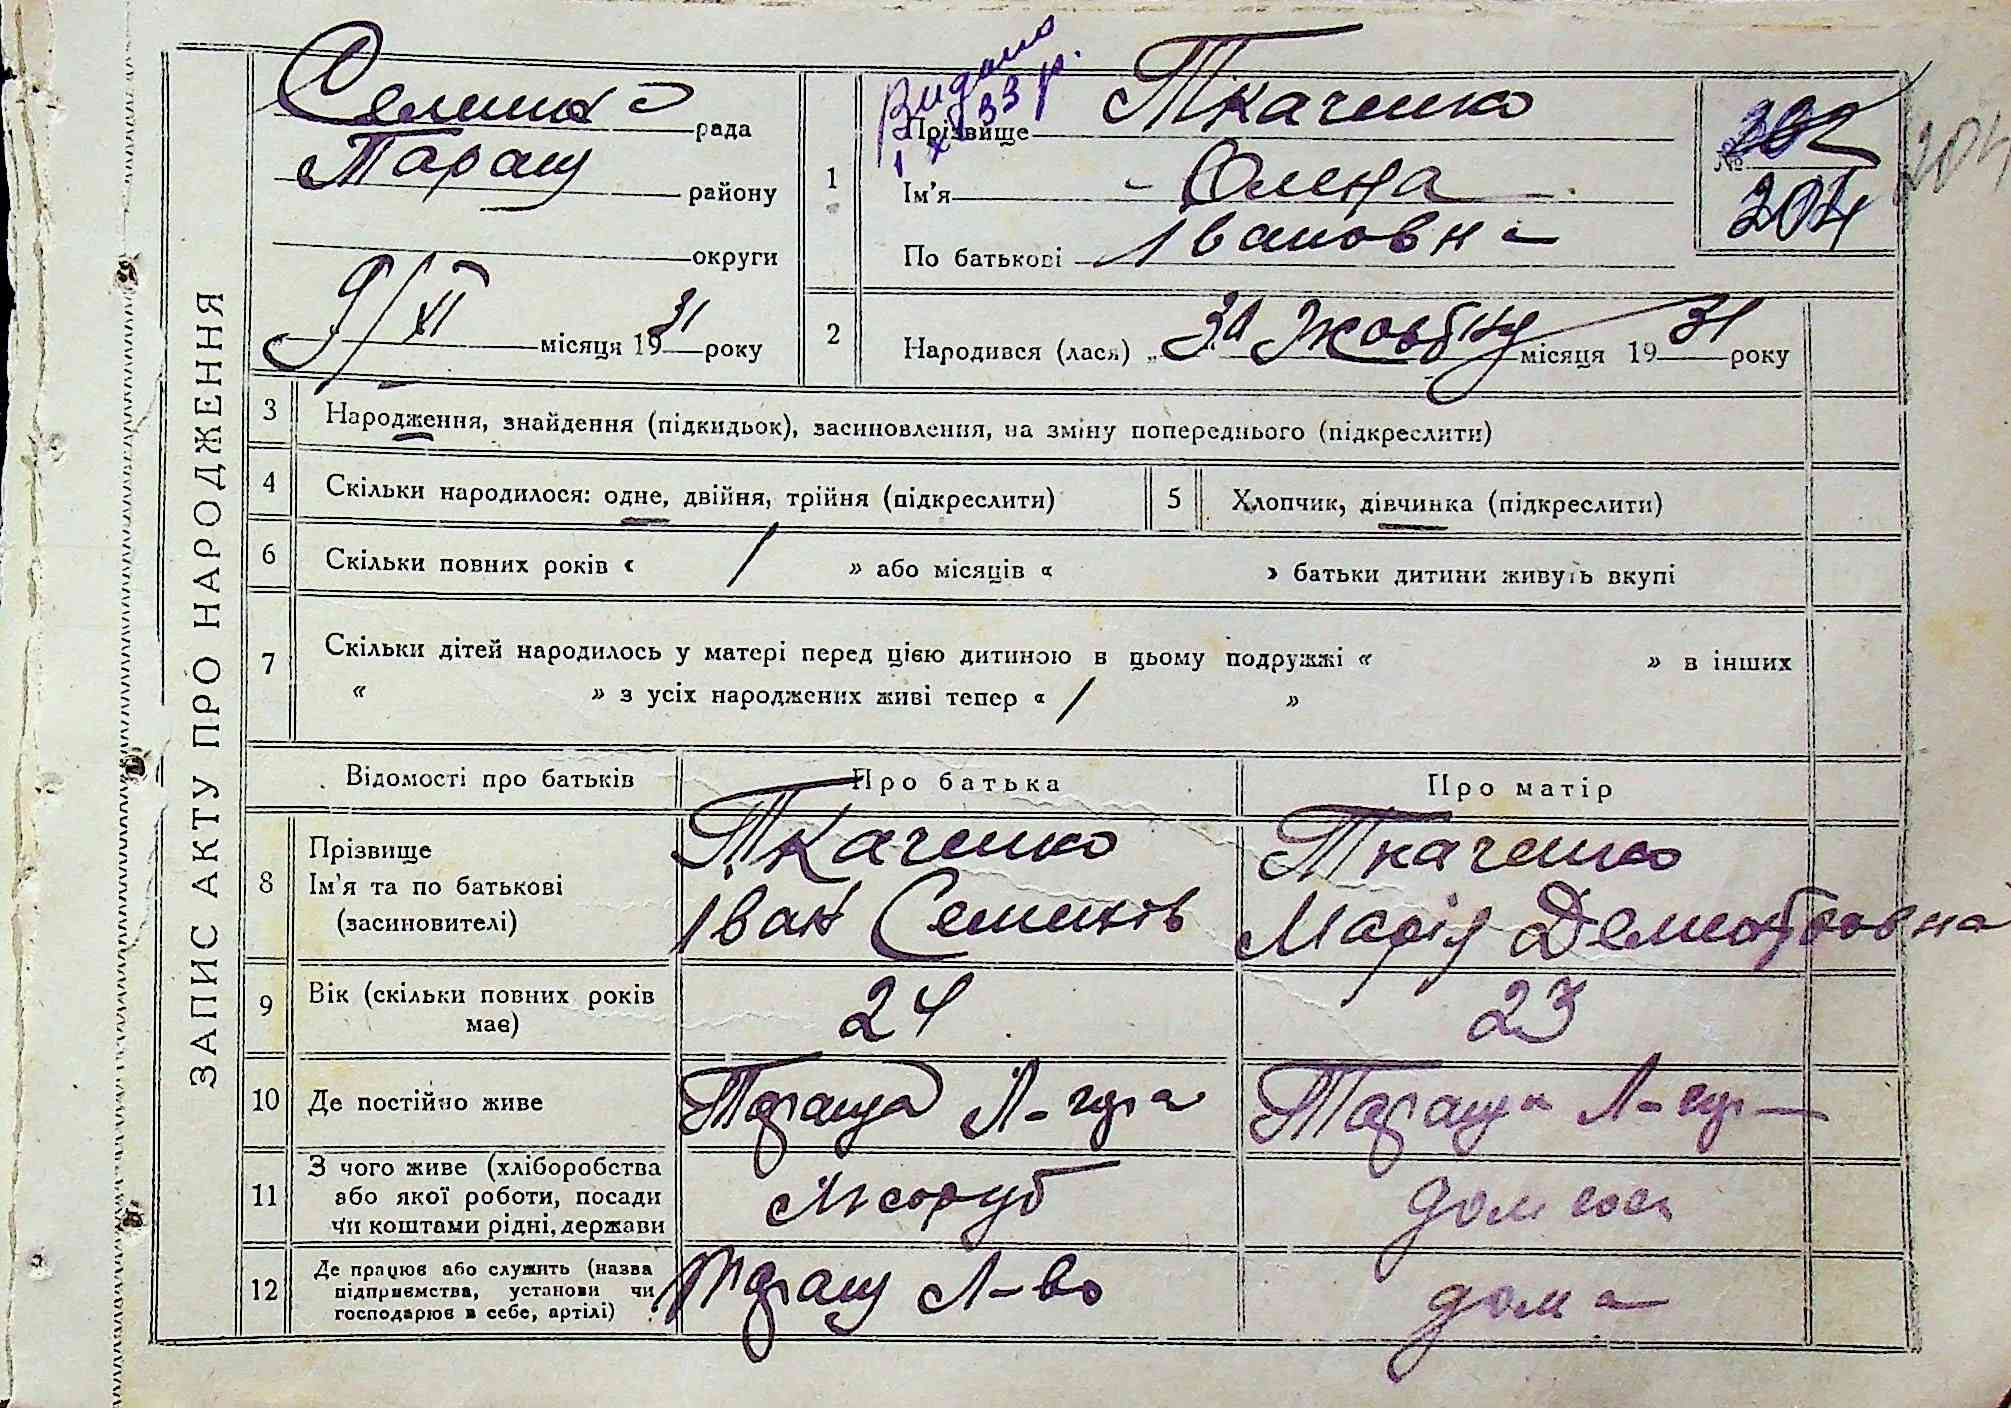 ЗАПИС АКТУ ПРО НАРОДЖЕННЯ
рада
Таращ району
округи
9/XI місяця 1931 року
Видано
33 р.
1 Прізвище Ткаченко
Ім'я Олена
По батькові Івановна
№ 202
204
204
2 Народився (лася) „ 30 Жовтня місяця 1931 року
3 Народження, знайдення (підкидьок), засиновлення, на зміну попереднього (підкреслити)
4 Скільки народилося: одне, двійня, трійня (підкреслити)
5 Хлопчик, дівчинка (підкреслити)
6 Скільки повних років « / » або місяців « » батьки дитини живуть вкупі
7 Скільки дітей народилось у матері перед цією дитиною в цьому подружжі « » в інших
« » з усіх народжених живі тепер « / »
Відомості про батьків Про батька Про матір
8 Прізвище
Ім'я та по батькові
(засиновителі)
Ткаченко
Іван Семенів
Ткаченко
Марія
9 Вік (скільки повних років
має)
24
23
10 Де постійно живе
Тараща Л-гура
Тараща Л-гур
11 З чого живе (хліборобства
або якої роботи, посади
чи коштами рідні, держави
Лісоруб
дом гос
12 Де працює або служить (назва
підприємства, установи чи
господарює в себе, артілі)
Таращ Л-во
дома